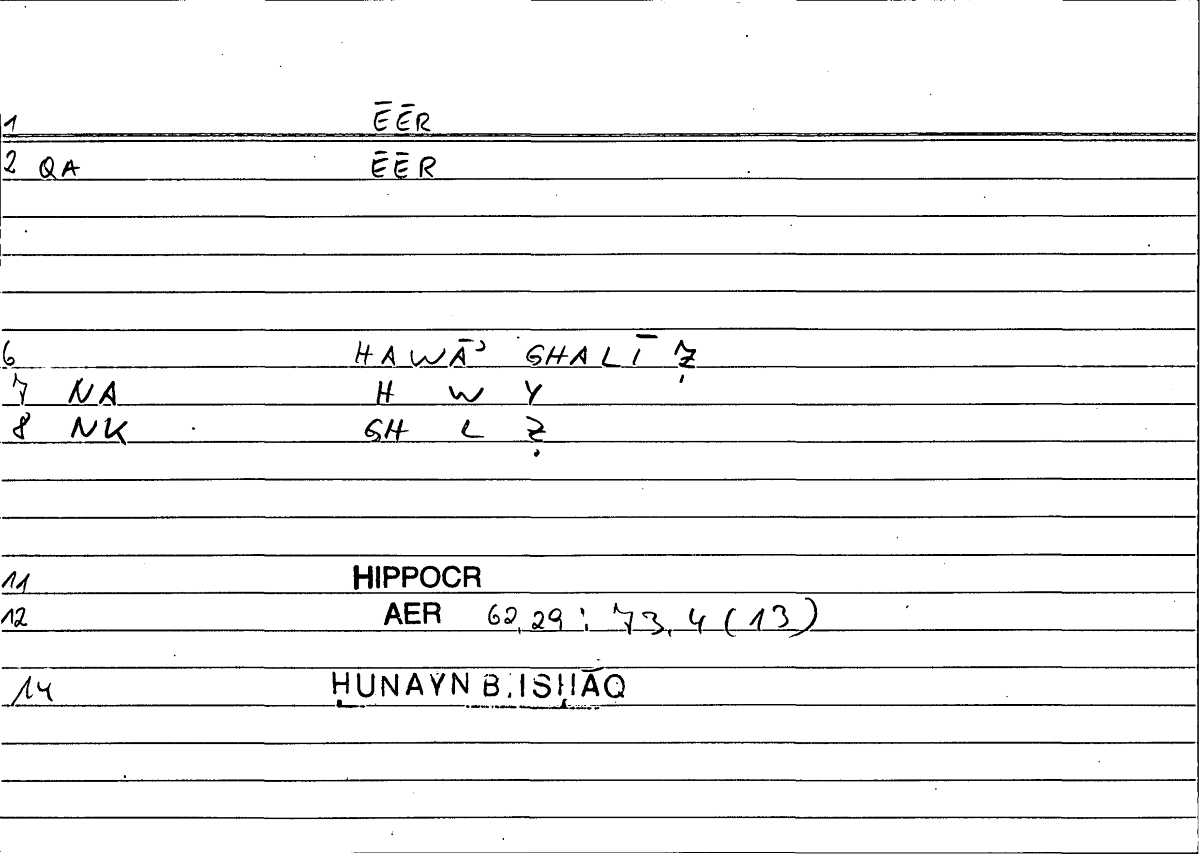 1 ĒĒR
2 QA ĒĒR
6 HAWĀʾ GHALĪẒ
7 NA H W Y
8 NK GH L Ẓ
11 HIPPOCR
12 AER 62,29 : 73,4 (13)
14 ḤUNAYN B. ISḤĀQ